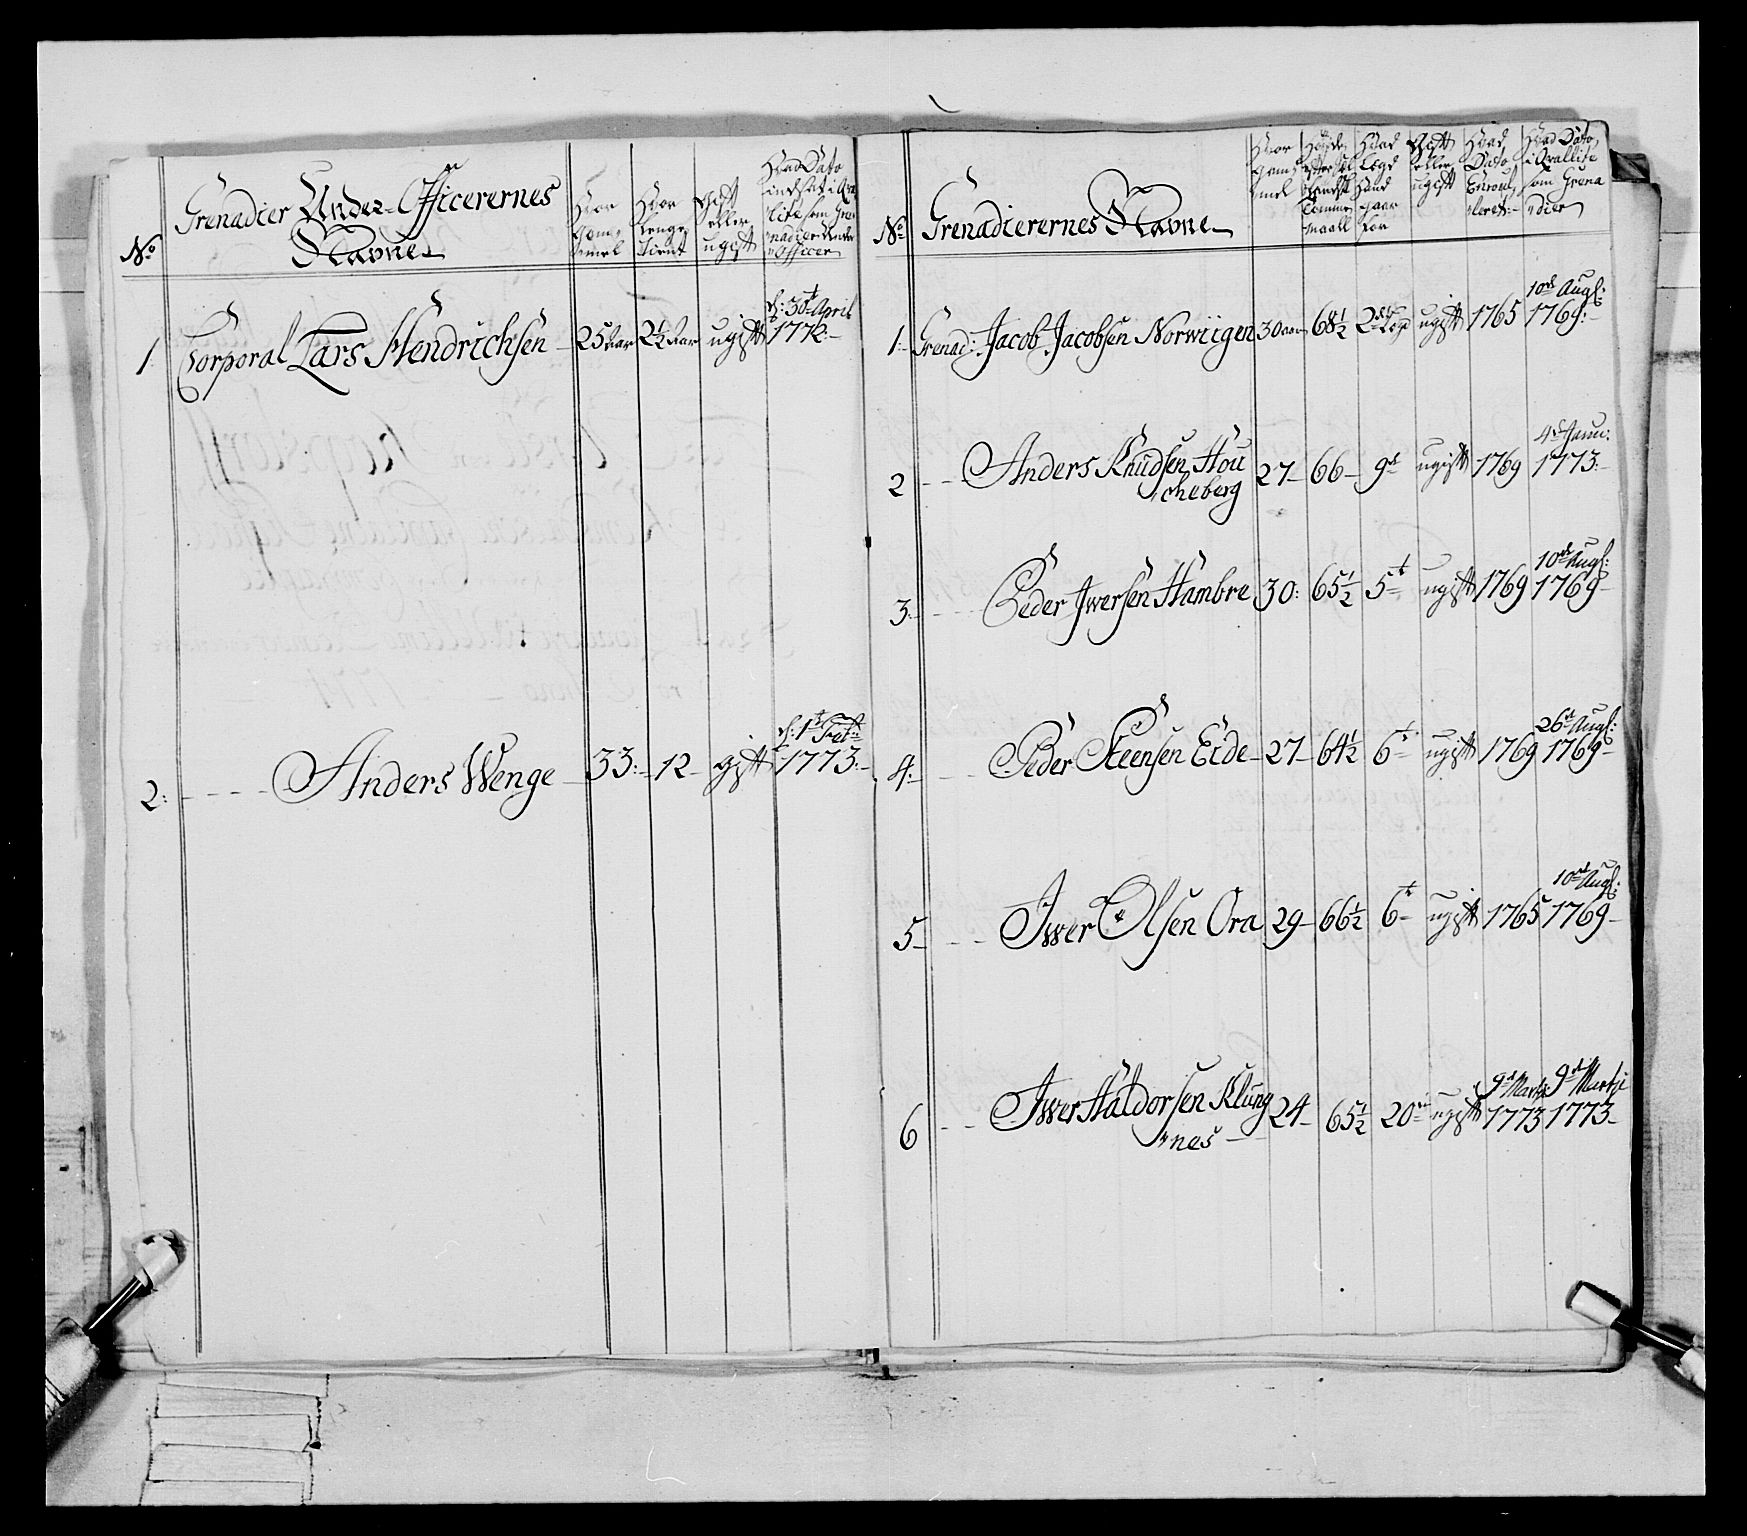 No
Grenadier Under-Officerernes
Navne
Hvor gam¬ mel
Hvor længe tient
Gift eller ugift
Hvad Dato indsat i Qva¬ litè som Gre¬ nadier Under Officer
1. Corporal Lars Hendrichsen 25 Aar 2½ Aar ugift d: 30te April 1772.
2. Anders Wenge 33. 12 gift d: 1te Feb: 1773.
No
Grenadierernes Navne
Hvor gam¬ mel
Høyde
Hvad Lægd Hand gaar for
Gift eller ugift
Hvad Dato Enroul¬ leret
Hvad Dato i Qvallitè som Grena dier
1. Grenad: Jacob Jacobsen Norwiigen 30 aar 68½ 2den Lægd ugift 1765 10de Augs: 1769.
2 Anders Knudsen Hou
cheberg 27 66 9de ugift 1769 4de Janu: 1773.
3. Peder Iwersen Hambre 30. 65½ 5te ugift 1769 10de Augs: 1769
4. Peder Steensen Eide 27 64½ 6te ugift 1769 26de Augs: 1769
5 Iwer Olsen Ora 29 66½ 6te ugift 1765 10de Augs: 1769
6 Iwer Haldorsen Klung
nes 24 65½ 20de ugift 9de Martij 1773 9de Martij 1773